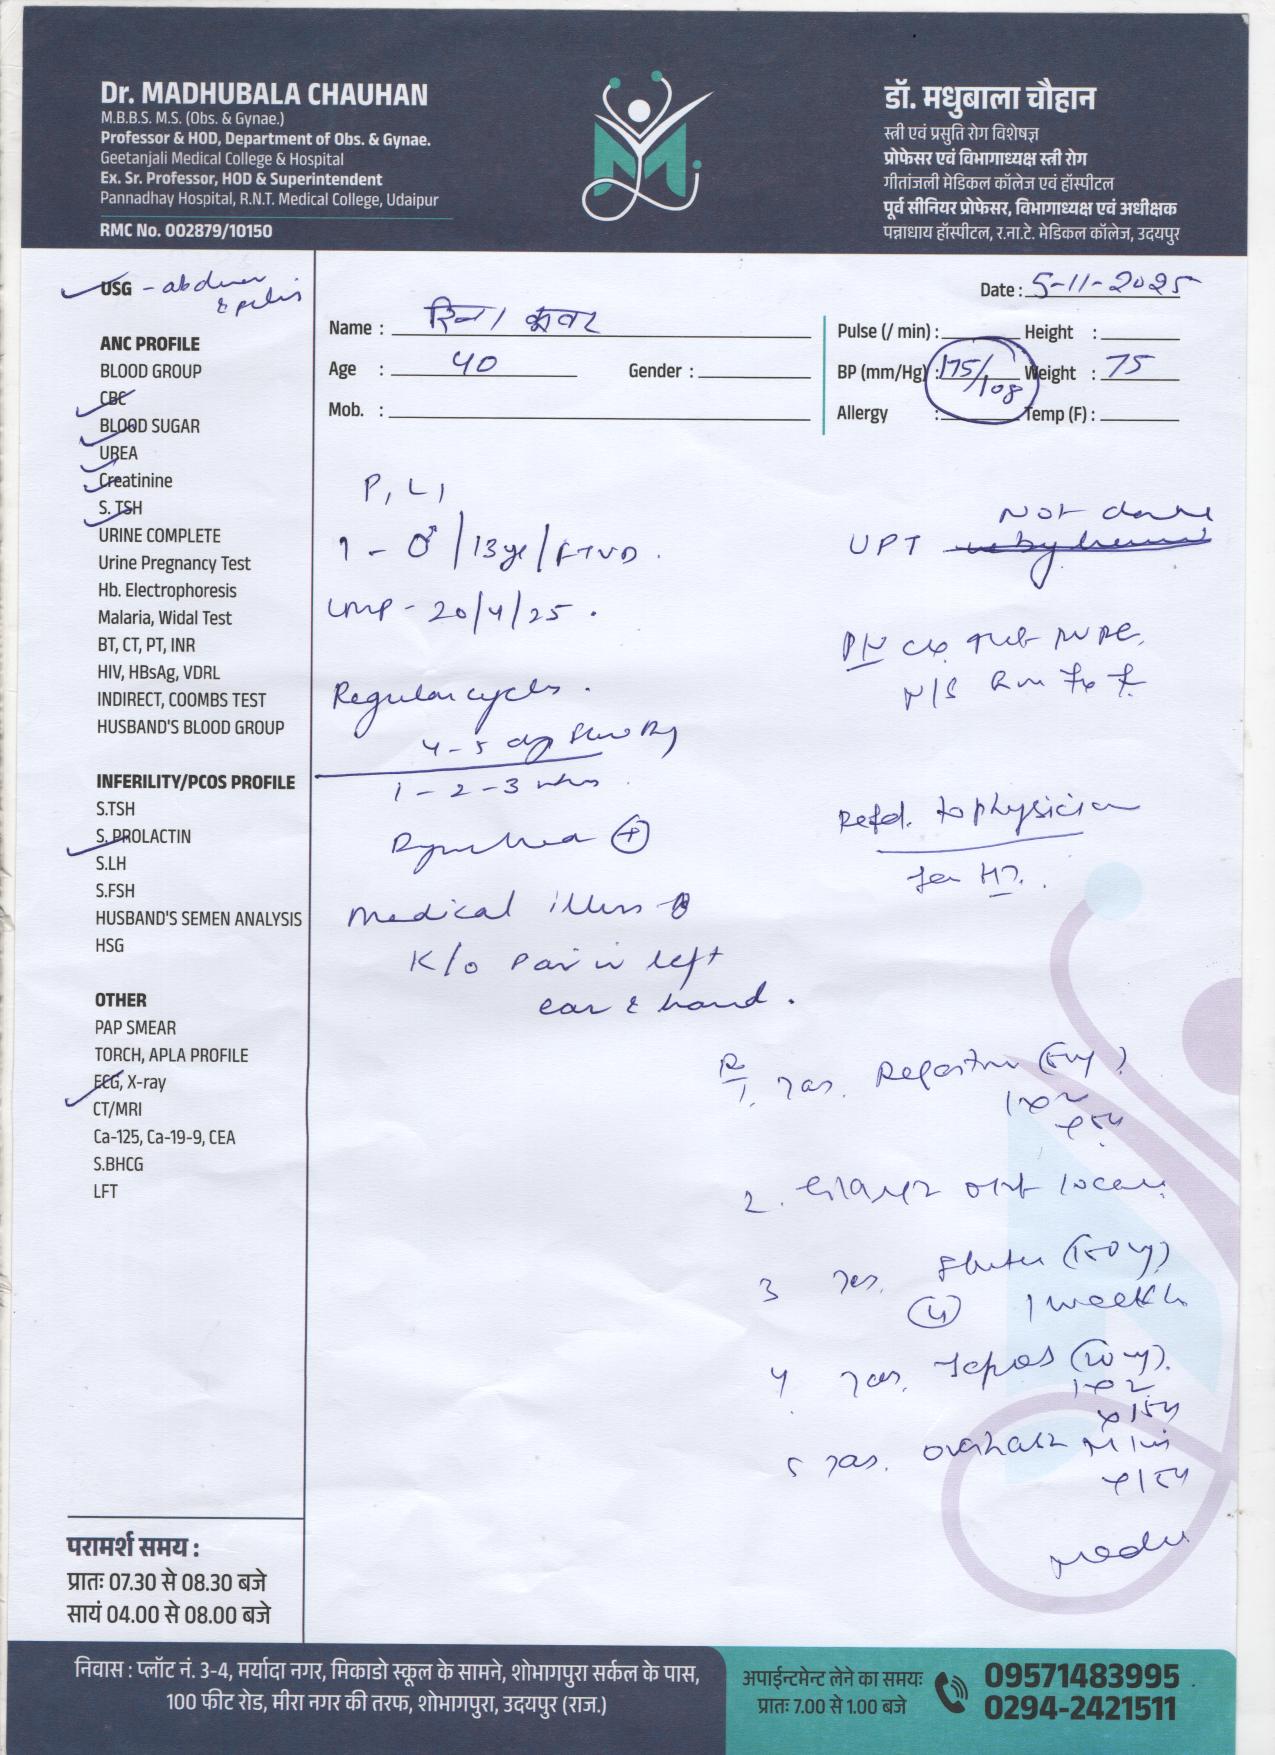 Dr. MADHUBALA CHAUHAN
M.B.B.S. M.S. (Obs. & Gynae.)
Professor & HOD, Department of Obs. & Gynae.
Geetanjali Medical College & Hospital
Ex. Sr. Professor, HOD & Superintendent
Pannadhay Hospital, R.N.T. Medical College, Udaipur
RMC No. 002879/10150
डॉ. मधुबाला चौहान
स्त्री एवं प्रसुति रोग विशेषज्ञ
प्रोफेसर एवं विभागाध्यक्ष स्त्री रोग
गीतांजली मेडिकल कॉलेज एवं हॉस्पीटल
पूर्व सीनियर प्रोफेसर, विभागाध्यक्ष एवं अधीक्षक
पन्नाधाय हॉस्पीटल, र.ना.टे. मेडिकल कॉलेज, उदयपुर
USG - abdomen
& pelvis
ANC PROFILE
BLOOD GROUP
CBC
BLOOD SUGAR
UREA
Creatinine
S. TSH
URINE COMPLETE
Urine Pregnancy Test
Hb. Electrophoresis
Malaria, Widal Test
BT, CT, PT, INR
HIV, HBsAg, VDRL
INDIRECT, COOMBS TEST
HUSBAND'S BLOOD GROUP
INFERILITY/PCOS PROFILE
S.TSH
S. PROLACTIN
S.LH
S.FSH
HUSBAND'S SEMEN ANALYSIS
HSG
OTHER
PAP SMEAR
TORCH, APLA PROFILE
ECG, X-ray
CT/MRI
Ca-125, Ca-19-9, CEA
S.BHCG
LFT
परामर्श समय :
प्रातः 07.30 से 08.30 बजे
सायं 04.00 से 08.00 बजे
Date : 5-11-2025
Name :
Pulse (/ min) : Height :
Age : 40 Gender :
BP (mm/Hg) : 175/108 Weight : 75
Mob. :
Allergy : Temp (F) :
P1 L1
1 - ♂ / 13 yr / FTVD.
LMP - 20/4/25.
Regular cycles.
4-5 days
1-2-3
+
Medical illness
K/o Pain in left
ear & hand.
UPT Not done
P/V
N/S
Refd. to physician
for HT.
Rx
1. Tas.
2.
3 Tas.
(4) 1 weekly
4 Tas.
5 Tas.
निवास : प्लॉट नं. 3-4, मर्यादा नगर, मिकाडो स्कूल के सामने, शोभागपुरा सर्कल के पास,
100 फीट रोड, मीरा नगर की तरफ, शोभागपुरा, उदयपुर (राज.)
अपाईन्टमेन्ट लेने का समयः
प्रातः 7.00 से 1.00 बजे
09571483995
0294-2421511